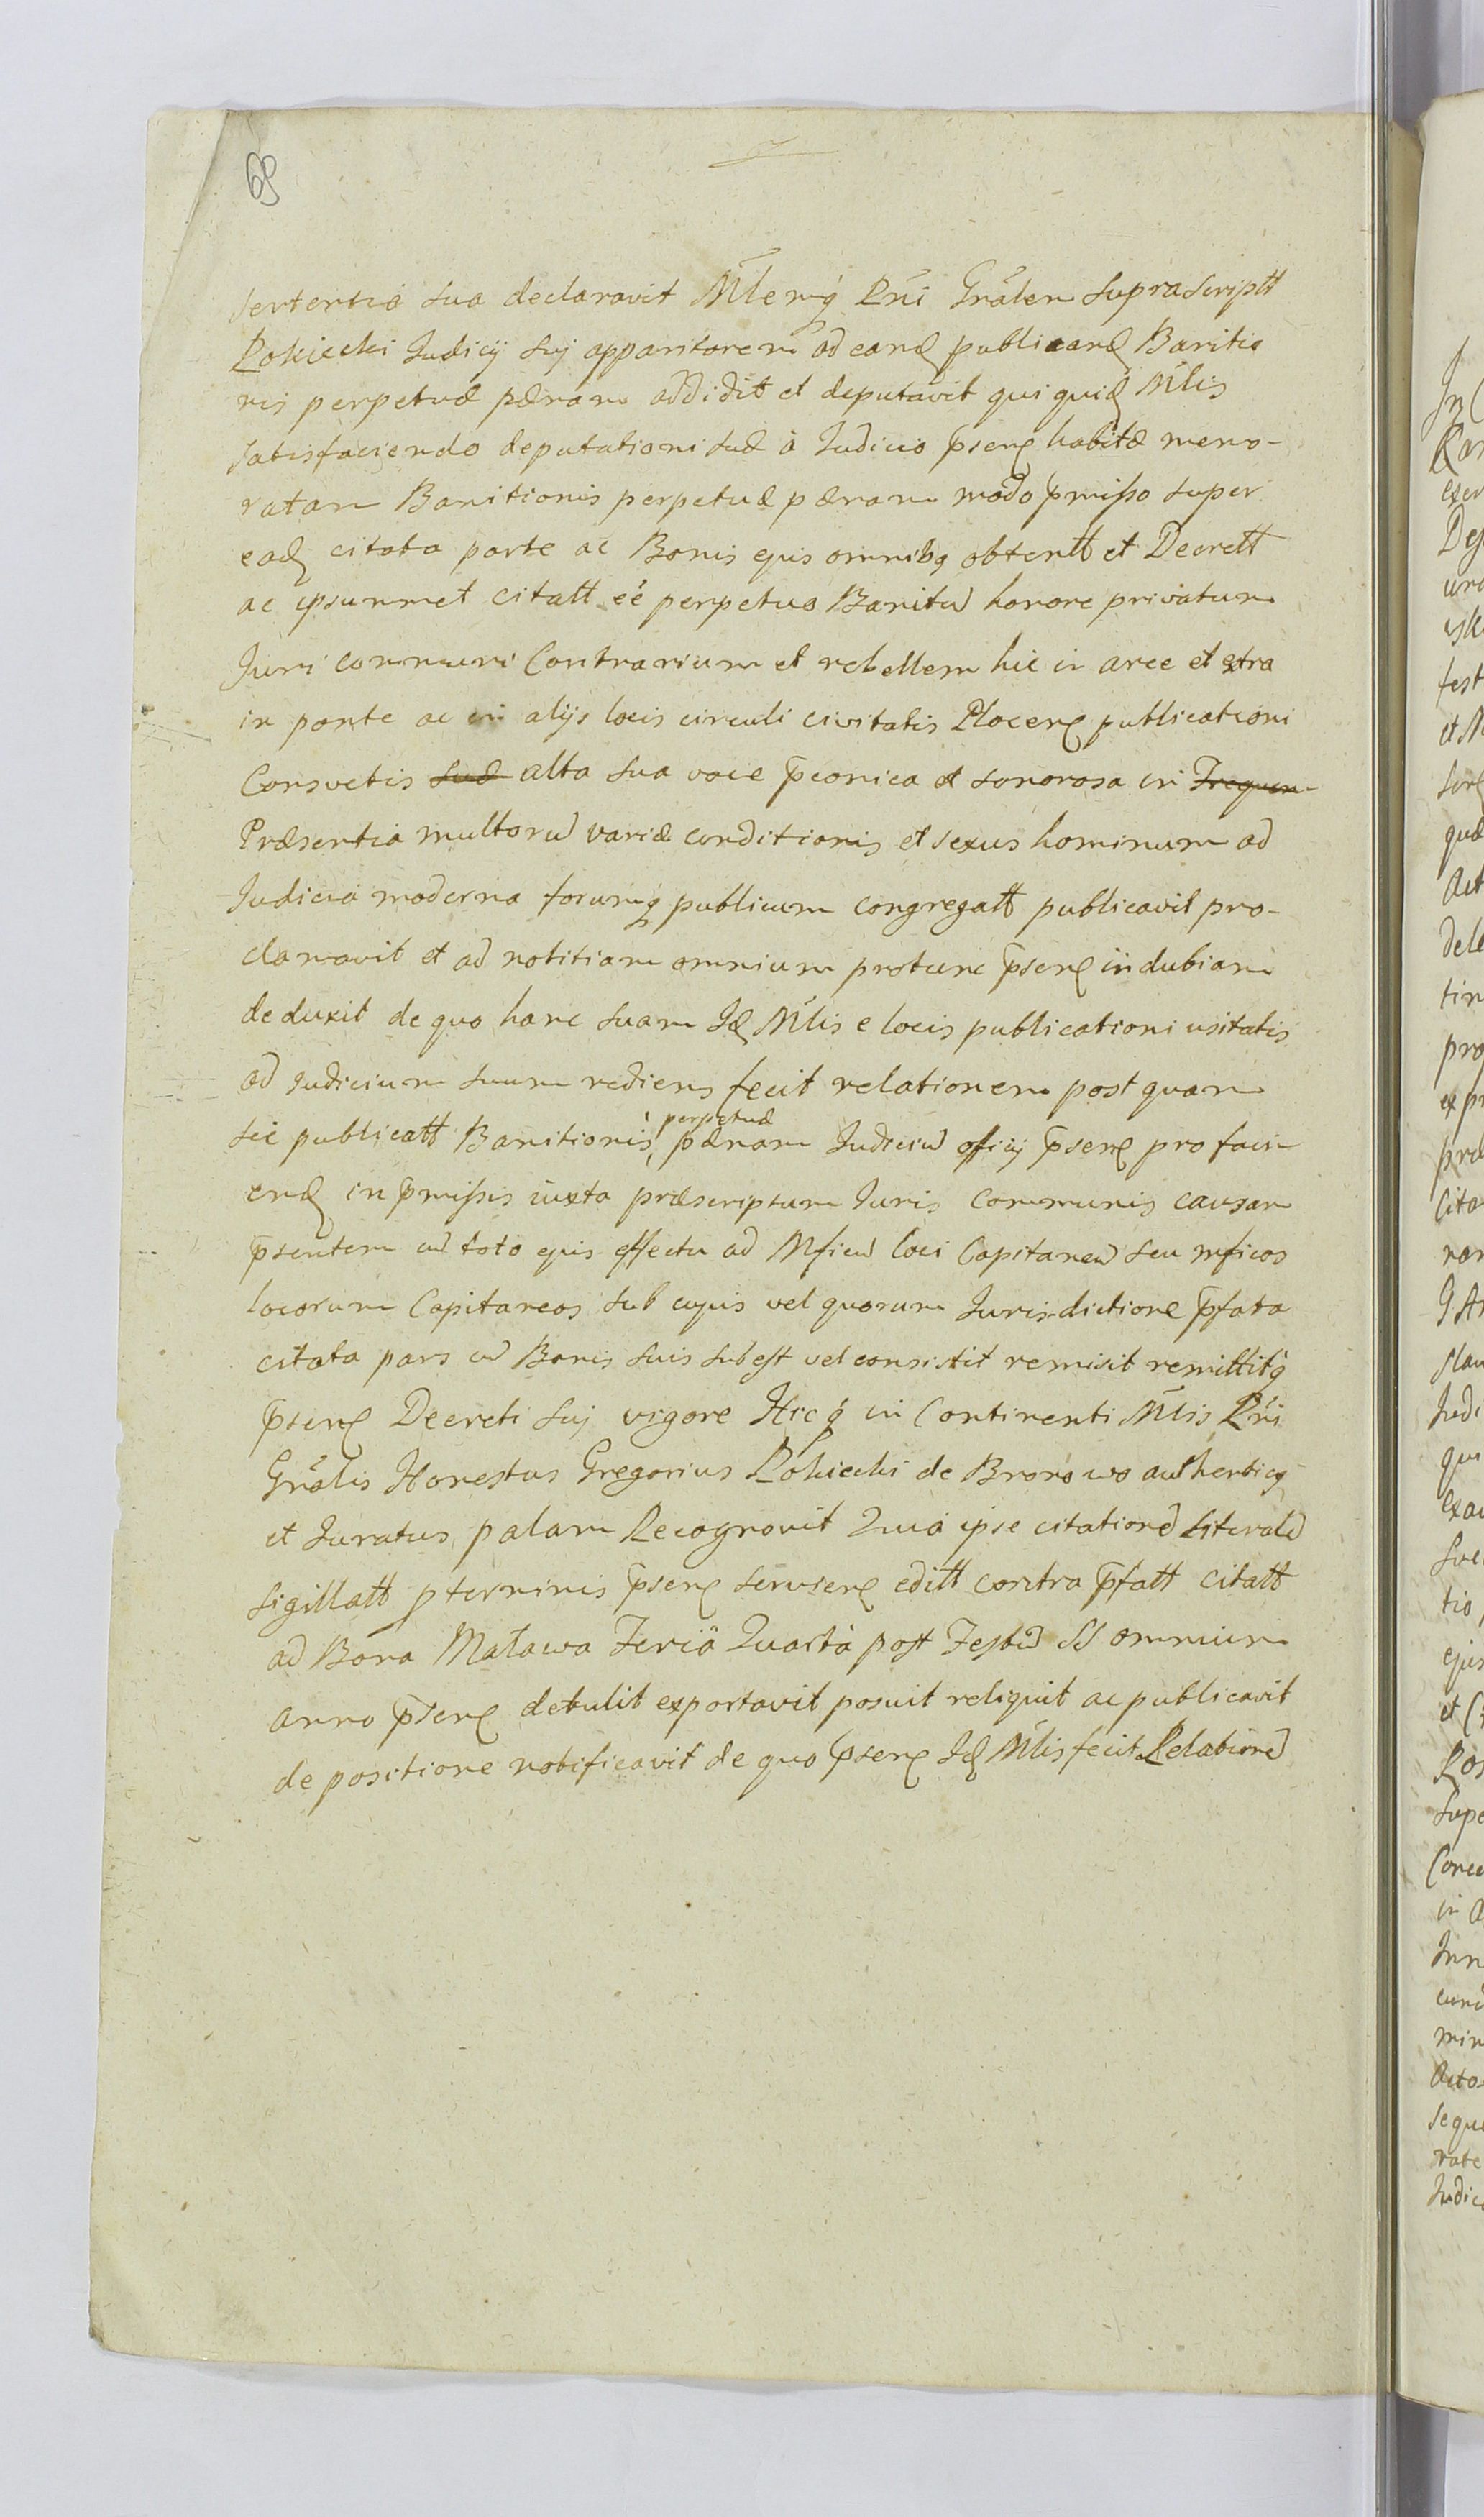 69
sententia sua declaravit Mlemq́ Rni Grálem supra scriptt
Rokicki Iudicij sui apparitorem ad eand publicand Banitio
nis perpetuæ pænam addidit et deputavit qui quid Mlis
satisfaciendo deputationi suæ à Iudicio p̄sen habitæ memo-
ratam Banitionis perpetuæ pænam modo p̄misso super
ead citata parte ac Bonis ejus omnibq obtentt et Decrett
ac ipsummet citatt eé perpetuo Banitū honore privatum
Iuri communi Contrarium et rebellem hic in arce et extra
in ponte ac in alijs locis circuli civitatis Plocen publicationi
Consvetis suæ alta sua voce p̄conica et sonorosa in Frequen
Præsentia multorū variæ conditionis et sexus hominum ad
Iudicia moderna forumq́ publicum congregatt publicavit pro-
clamavit et ad notitiam omnium protunc p̄sen indubiam
deduxit de quo hanc suam Id Mlis e locis publicationi usitatis
ad Iudicium suum rediens fecit relationem post quam
sic publicatt Banitionis perpetuæ pænam Iudiciū officij p̄sen pro faci
end in p̄missis iuxta præscriptum Iuris communis causam
p̄sentem cū toto ejus effectu ad Mficū loci Capitaneū seu mficos
locorum Capitaneos sub cujus vel quorum Iurisdictione p̄fata
citata pars cū Bonis suis subest vel consistit remisit remittitq́
p̄sen Decreti sui vigore Hicq́ in Continenti Mlis Rni
Grális Honestus Gregorius Rokicki de Bronowo authenticq
et Iuratus palam Recognovit Quia ipse citationē Literalē
sigillatt p terminis p̄sen servien editt contra p̄fatt citatt
ad Bona Malawa Feriâ Quartà post Festū SS omnium
anno p̄sen detulit exportavit posuit reliquit ac publicavit
de positione notificavit de quo p̄sen Id Mlis fecit Relationē